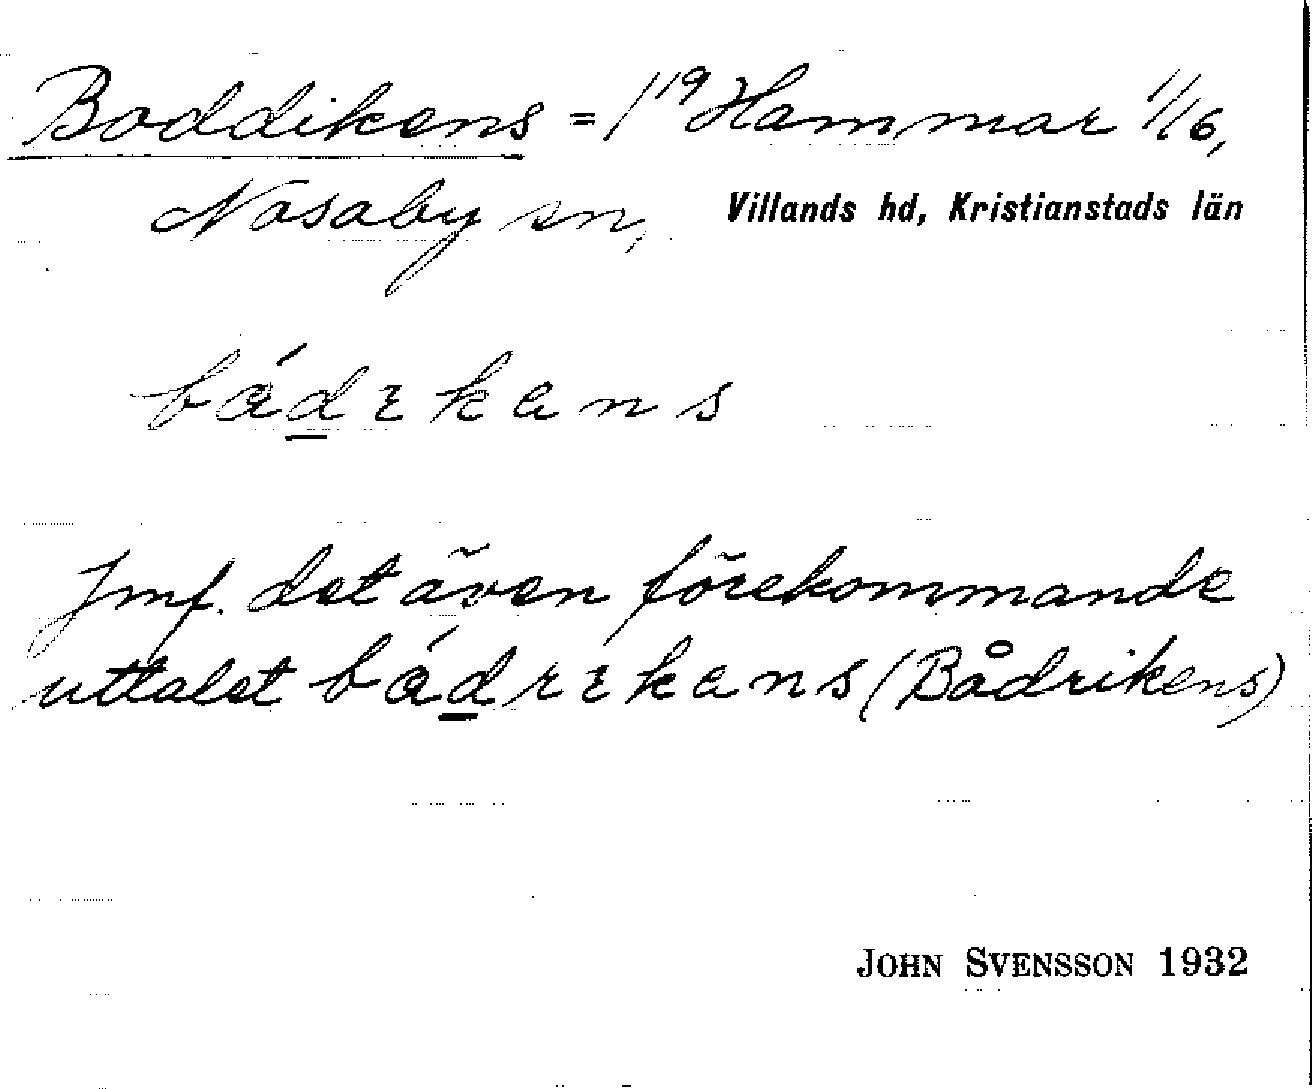 Boddikens = 1¹⁹ Hammar 1/16,
Nosaby sn, Villands hd, Kristianstads län
bádɩkens
Jmf. det även förekommande
uttalet bádrɩkens (Bådrikens)
JOHN SVENSSON 1932